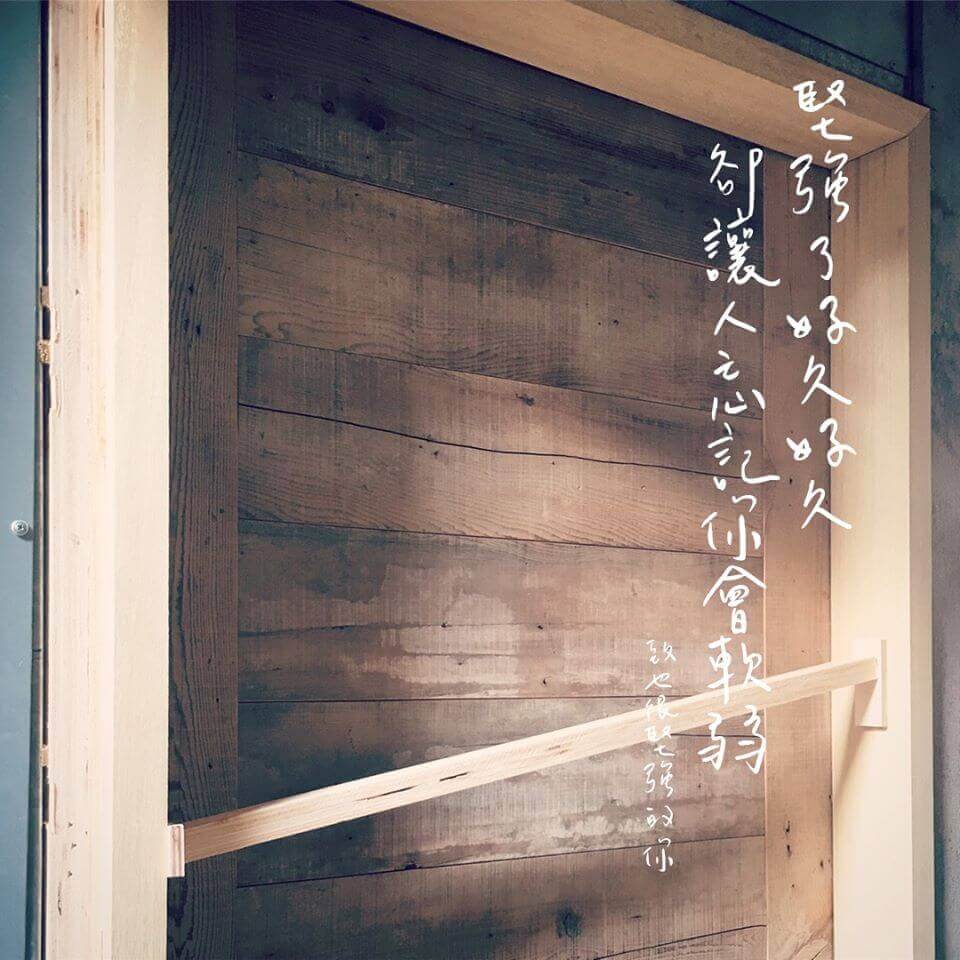 堅強了好久好久
卻讓人忘記你會軟弱
致也很堅強的你